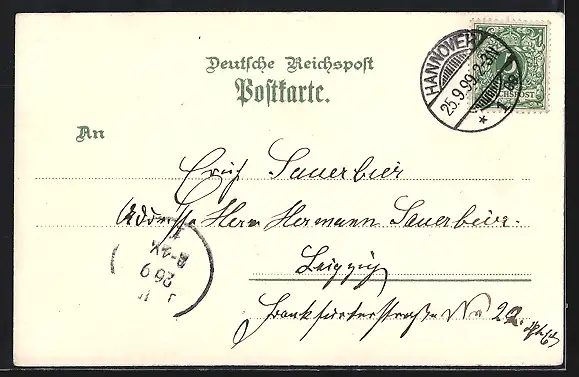 Deutsche Reichspost
Postkarte.
HANNOVER
25.9.99.2-3N
* 1
REICHSPOST
An
Erich Sauerbier
Addresse Herrn Hermann Sauerbier.
Leipzig
Frankfurterstraße No 22.
26 9